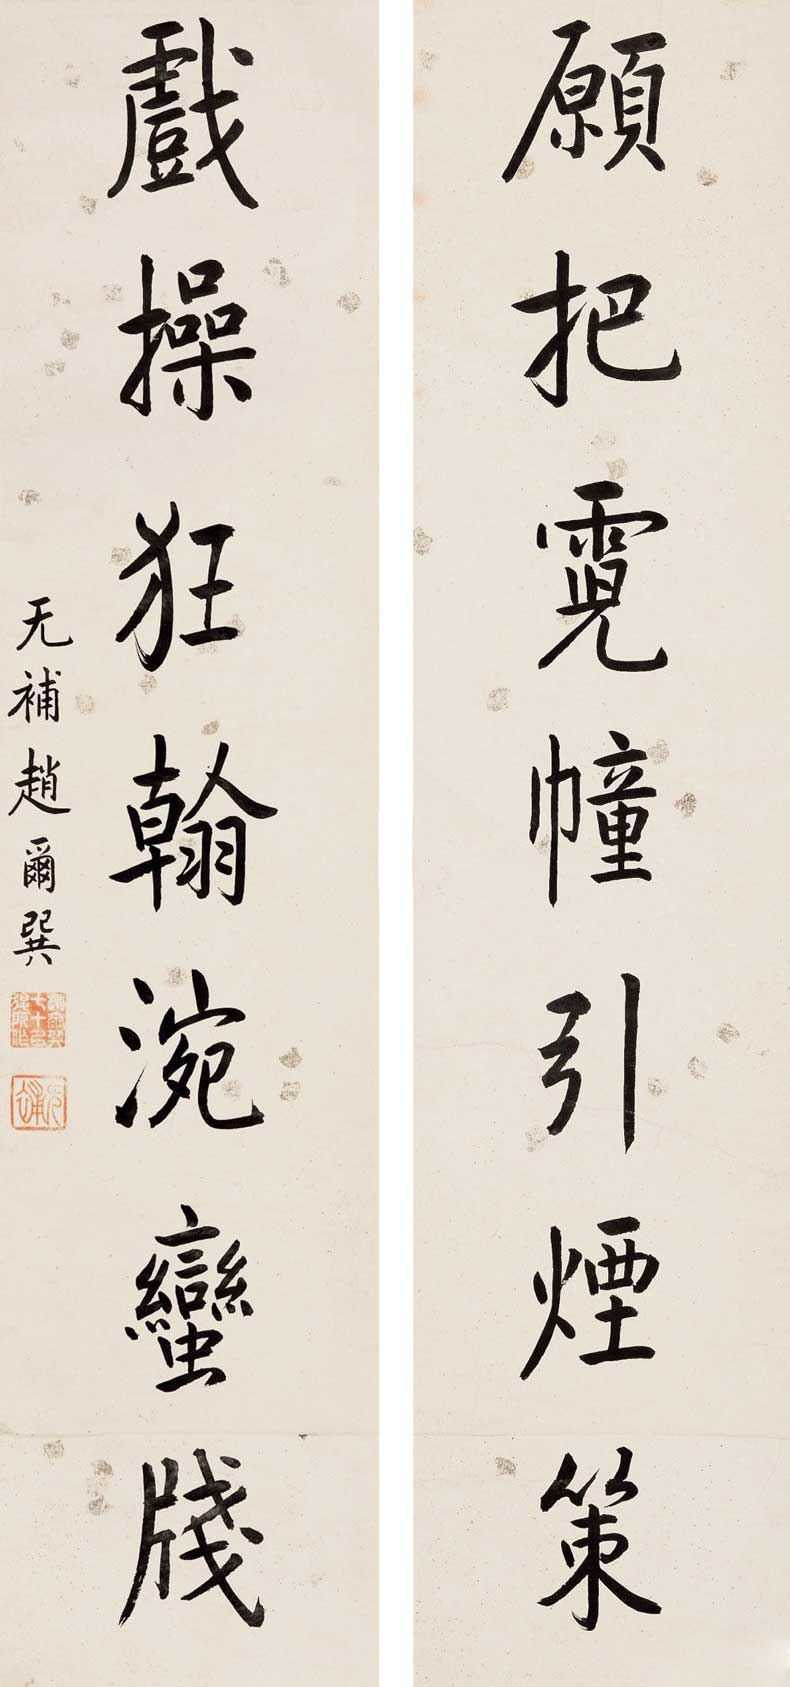 願把霓幢引煙策
戲操狂翰涴蠻牋
无補趙爾巽